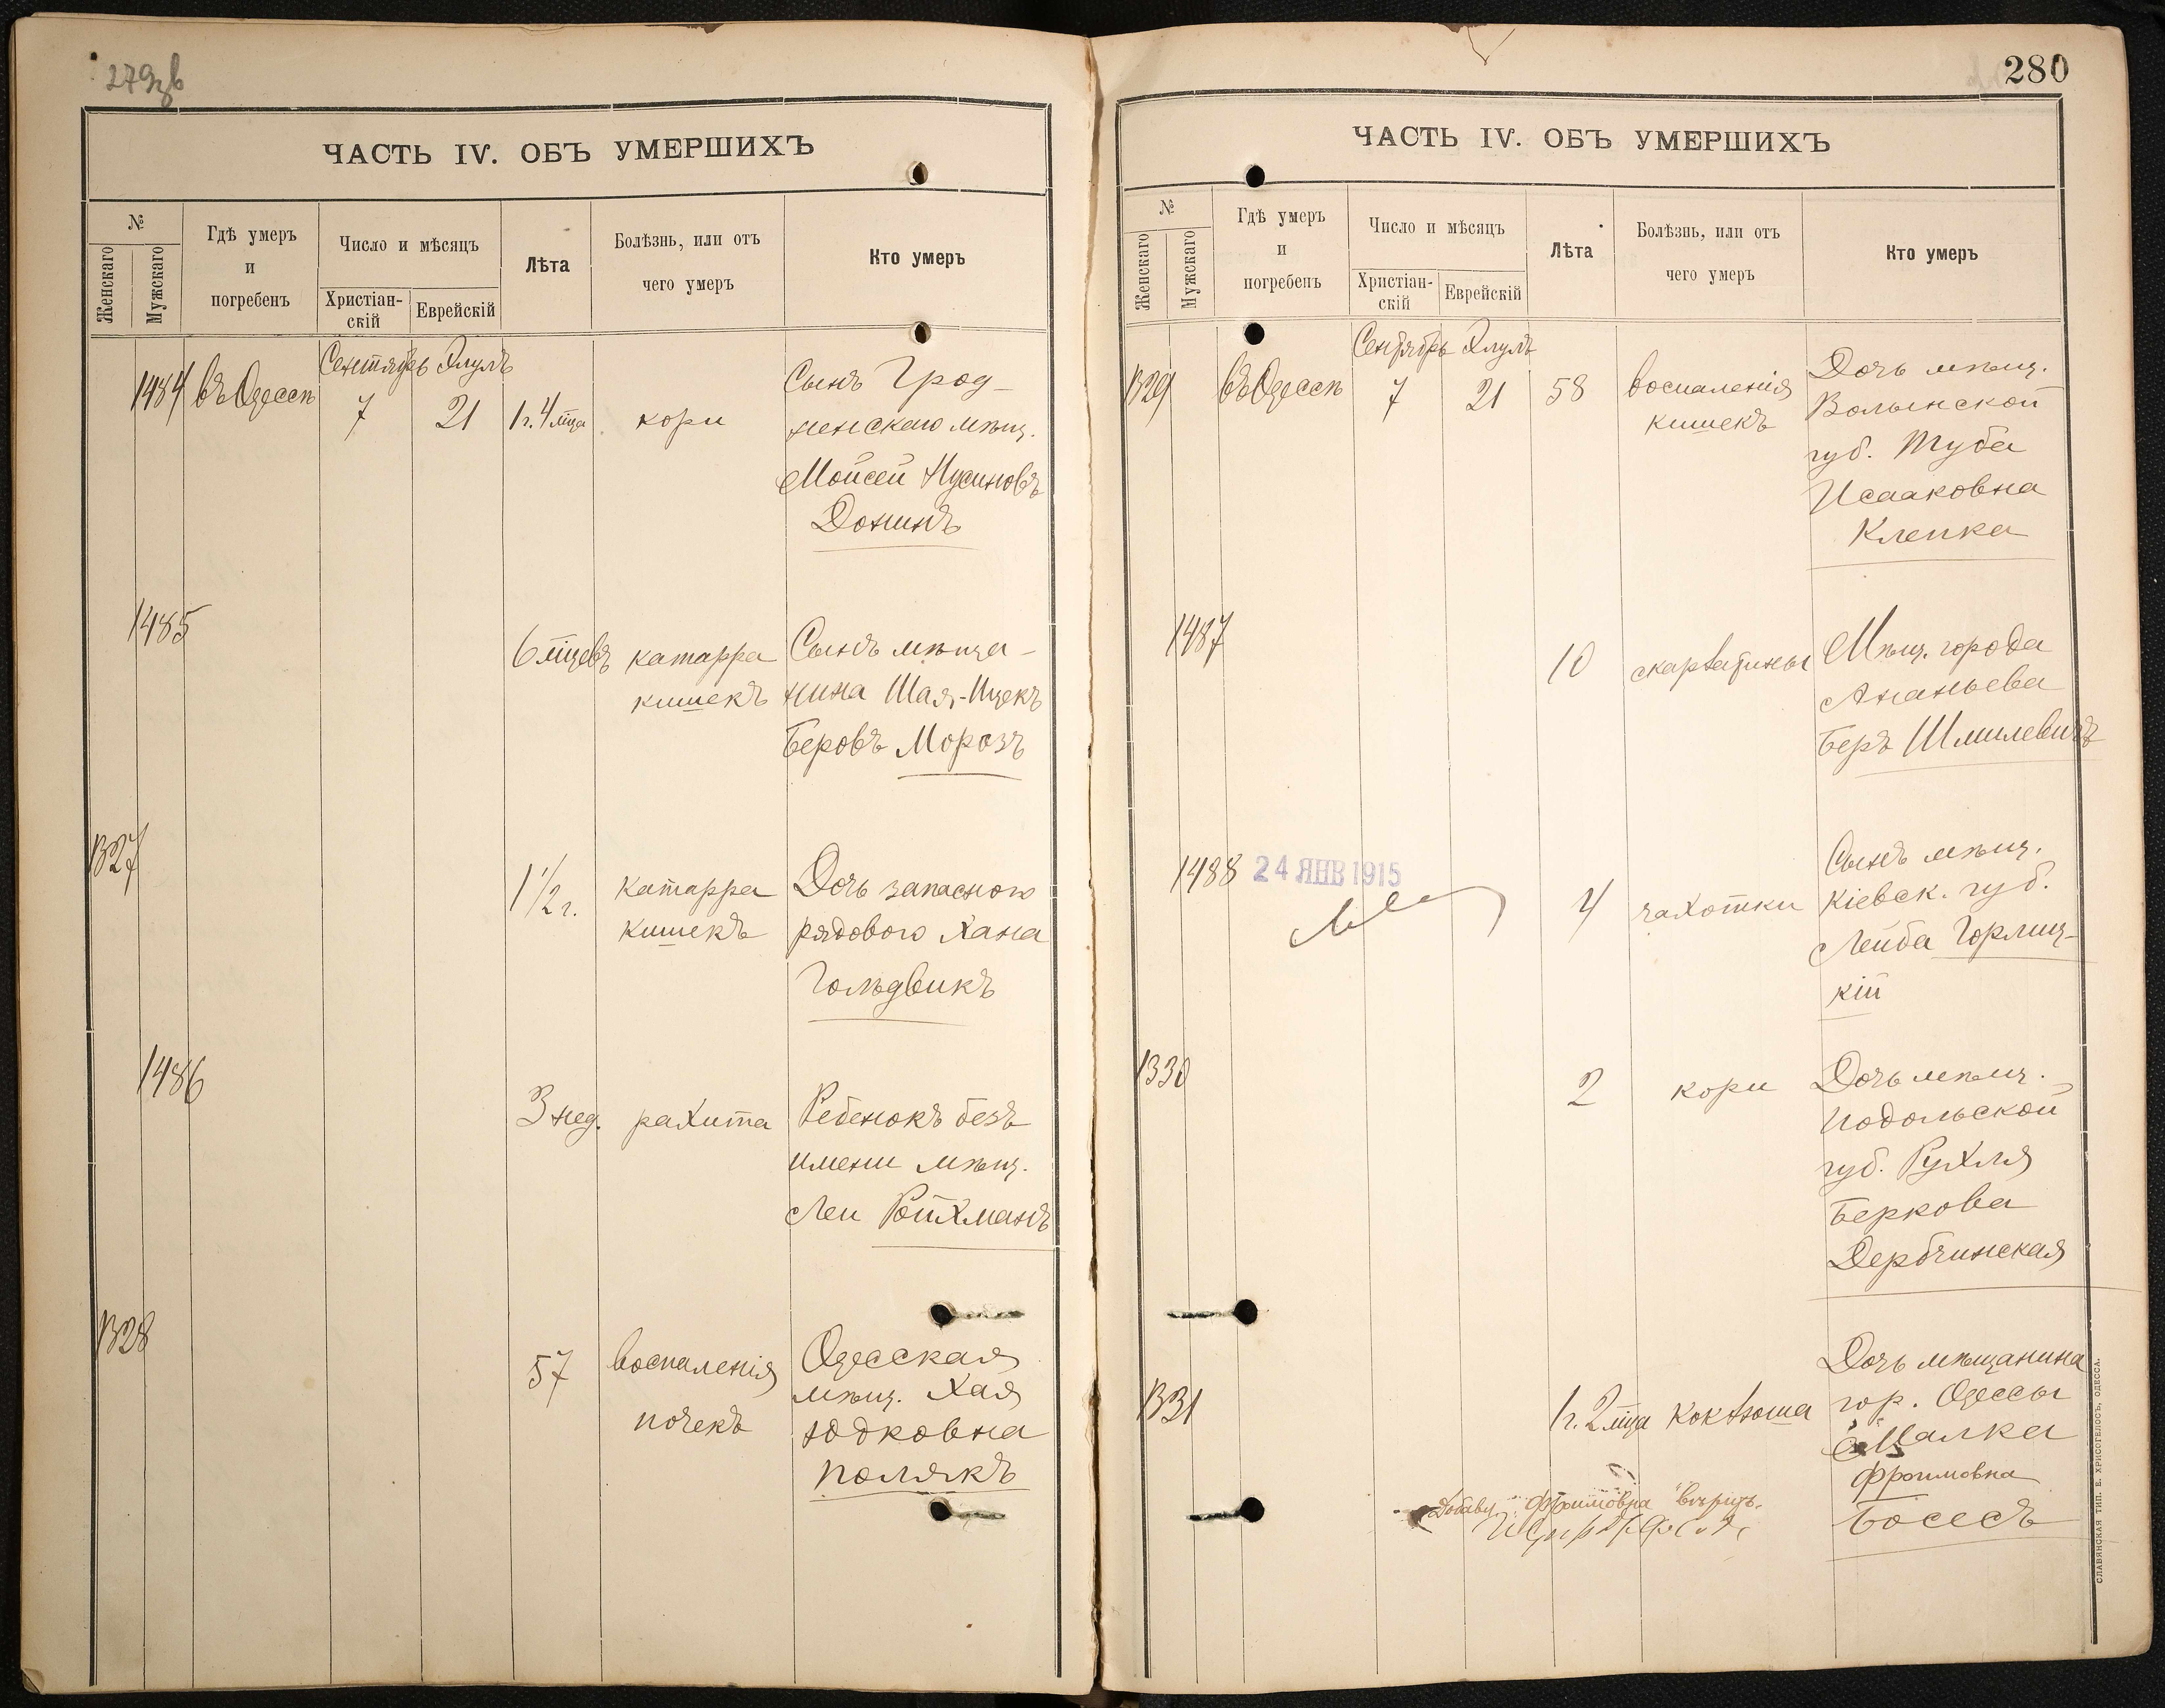 279зв
ЧАСТЬ IV. ОБЪ УМЕРШИХЪ
№
Женскаго
Мужскаго
Гдѣ умеръ
и
погребенъ
Число и мѣсяцъ
Христіан-
скій
Еврейскій
Лѣта
Болѣзнь, или отъ
чего умеръ
Кто умеръ
Сентябрь Элулъ
1484 въ Одессѣ 7 21 1 г. 4 мца кори
Сынъ Грод-
ненскаго мѣщ.
Мойсей Нусиновъ
Донинъ
1485
6 мцевъ катарра
кишекъ
Сынъ мѣща-
нина Шая-Ицекъ
Беровъ Морозъ
1327
1 1/2 г. катарра
кишекъ
Дочь запасного
рядового Хана
Гольдвикъ
1486
3 нед. рахита
Ребенокъ безъ
имени мѣщ.
Леи Ротхманъ
1328
57 воспаленія
почекъ
Одесская
мѣщ. Хая
Юдковна
Полякъ
280
ЧАСТЬ IV. ОБЪ УМЕРШИХЪ
№
Женскаго
Мужскаго
Гдѣ умеръ
и
погребенъ
Число и мѣсяцъ
Христіан-
скій
Еврейскій
Лѣта
Болѣзнь, или отъ
чего умеръ
Кто умеръ
Сентябрь Элулъ
1329 въ Одессѣ 7 21 58 воспаленія
кишекъ
Дочь мѣщ.
Волынской
губ. Туба
Исааковна
Клепка
1487
10 скарлатины
Мѣщ. города
Ананьева
Беръ Шмилевичъ
1488 24 ЯНВ 1915
4 чахотки
Сынъ мѣщ.
Кіевск. губ.
Лейба Горлиц-
кій
1330
2 кори
Дочь мѣщ.
Подольской
губ. Рухля
Беркова
Дербчинская
1331
1 г. 2 мца коклюша
Дочь мѣщанина
гор. Одессы
Малка
Фроимовна
Босесъ
добавл. "Фроимовна"
СЛАВЯНСКАЯ ТИП. Е. ХРИСОГЕЛОСЪ, ОДЕССА.